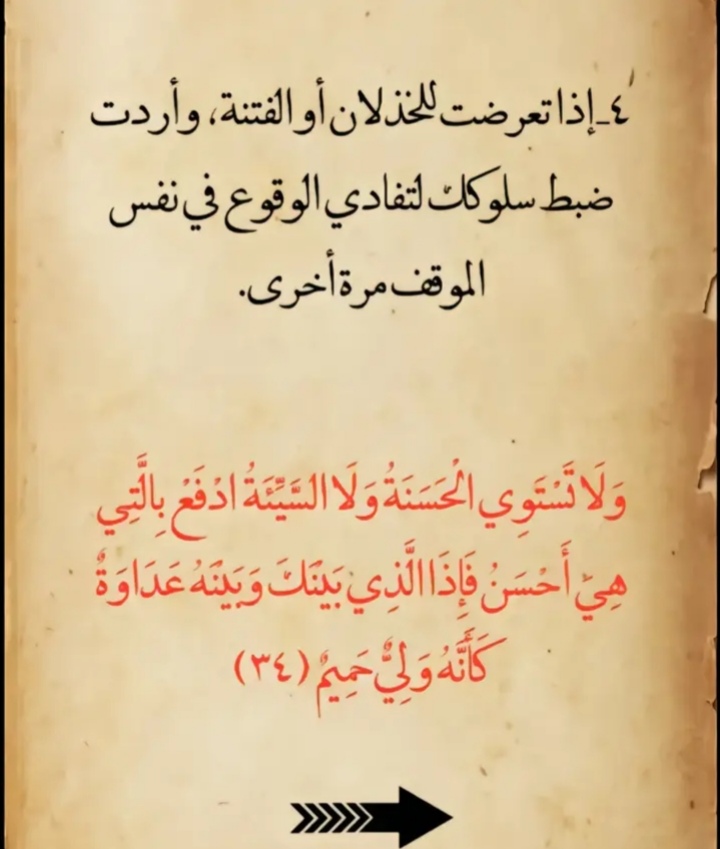 ٤_إذا تعرضت للخذلان أو الفتنة، وأردت
ضبط سلوكك لتفادي الوقوع في نفس
الموقف مرة أخرى.
وَلَا تَسْتَوِي الْحَسَنَةُ وَلَا السَّيِّئَةُ ادْفَعْ بِالَّتِي
هِيَ أَحْسَنُ فَإِذَا الَّذِي بَيْنَكَ وَبَيْنَهُ عَدَاوَةٌ
كَأَنَّهُ وَلِيٌّ حَمِيمٌ (٣٤)